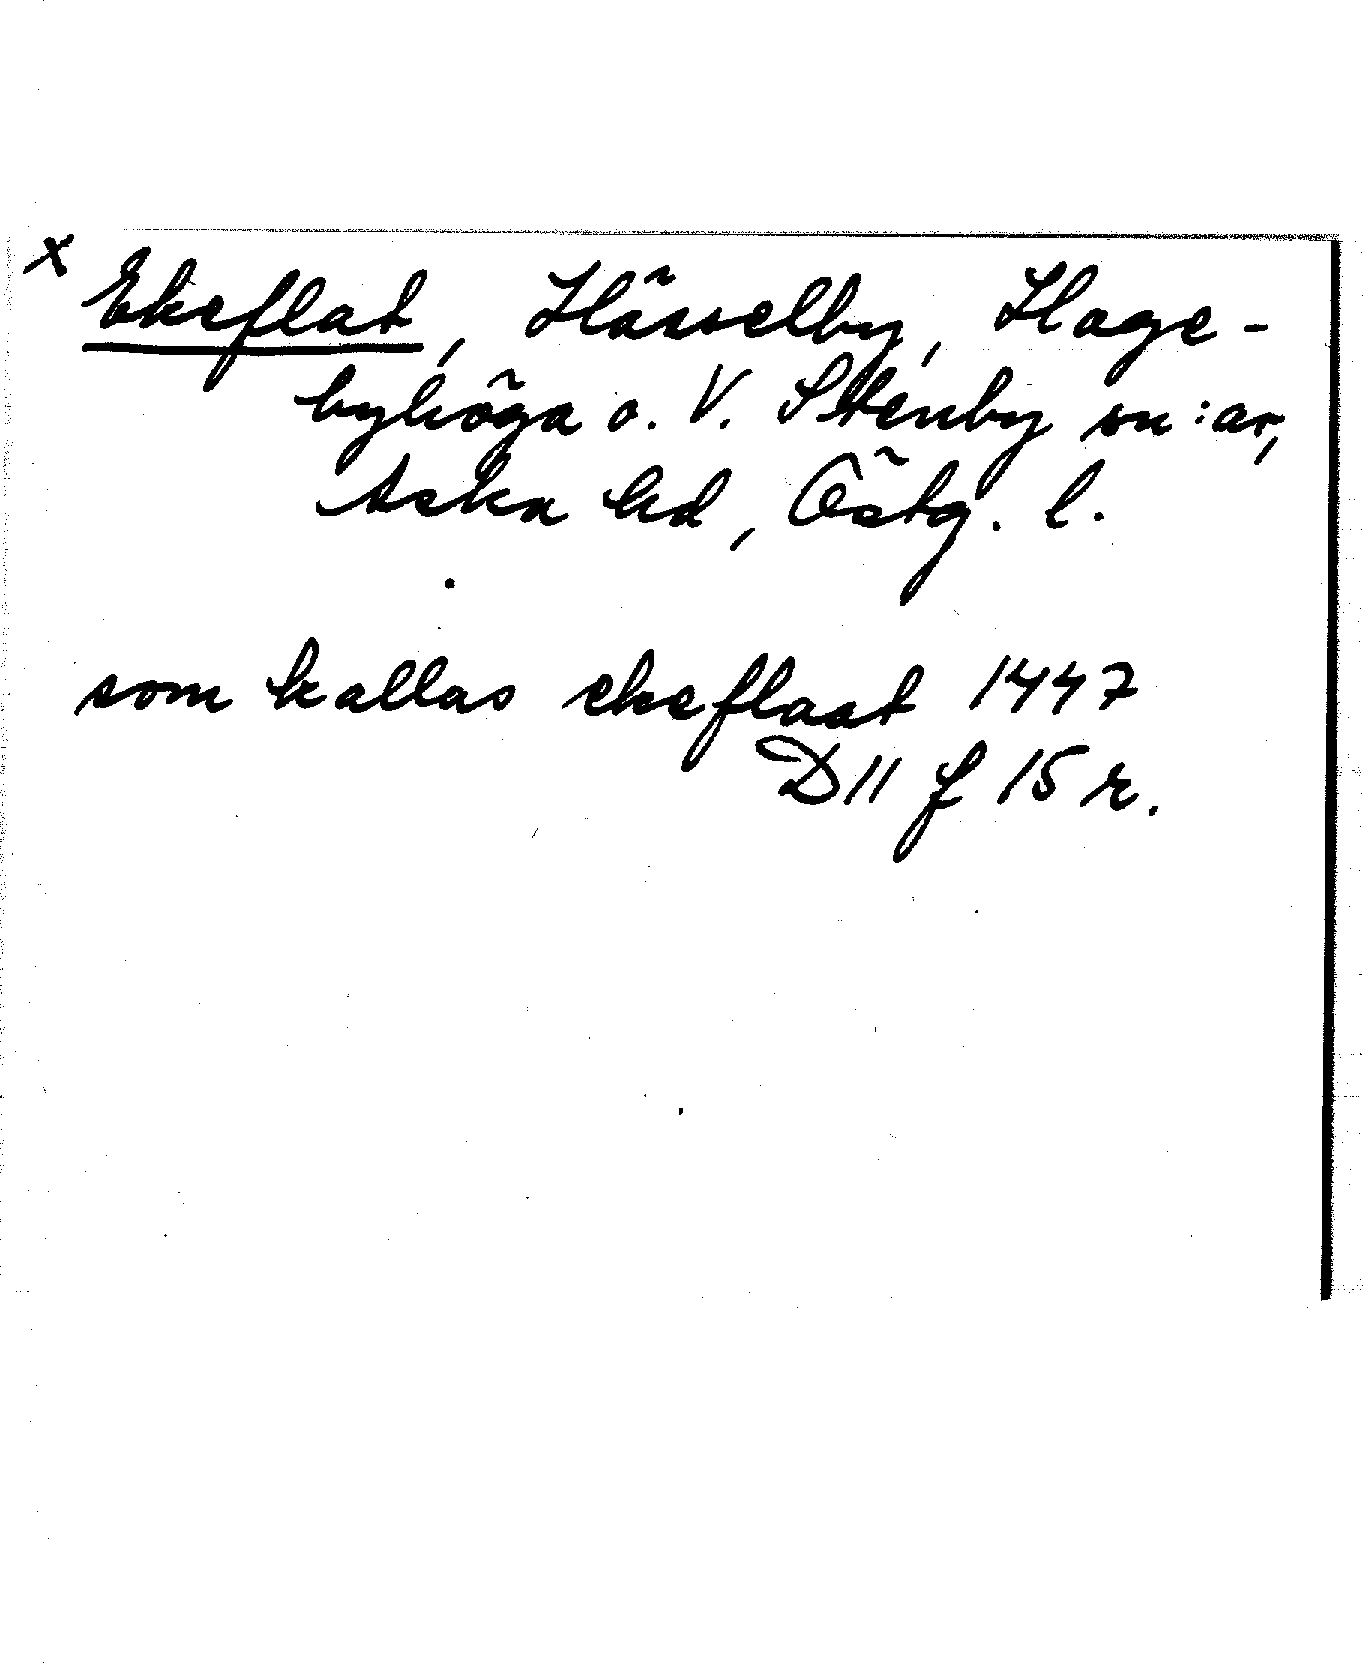 x Ekeflat, Hässelby, Hage-
byhöga o. V. Stenby sn:ar,
Aska hd, Östg. l.
som kallas ekeflaat 1447
D11 f 15 r.